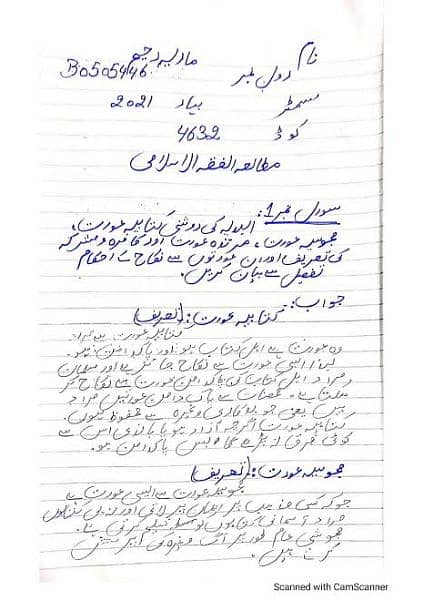 نام
ماریہ رحیم
رول نمبر
B0505446
سمسٹر
بہار 2021
کوڈ 4632
مطالعہ الفقہ الاسلامی
سوال نمبر 1: الہدایہ کی روشنی کتابیہ عورت،
مجوسیہ عورت، مرتدہ عورت اور کافرہ و مشرکہ
کی تعریف اور ان عورتوں سے نکاح کے احکام
تفصیل سے بیان کریں۔
جواب:
کتابیہ عورت: (تعریف)
کتابیہ عورت سے مراد
وہ عورت ہے اہل کتاب ہو اور پاک دامن ہو۔
لہذا ایسی عورت سے نکاح جائز ہے اور مسلمان
مرد اہل کتاب کی پاک دامن عورت سے نکاح کر
سکتا ہے۔ محصنات سے پاک دامن عورتیں مراد
ہیں یعنی جو بدکاری وغیرہ سے محفوظ ہوں۔
کتابیہ عورت اگرچہ آزاد ہو یا باندی اس سے
کوئی فرق نہ پڑے گا بس پاک دامن ہو۔
مجوسیہ عورت: (تعریف)
مجوسیہ عورت سے ایسی عورت ہے
جو کہ کسی مذہب پر ایمان نہیں لاتی اور نہ ہی
مراد آسمانی کتابوں کو تسلیم کرتی ہے۔
مجوسی عام طور پر آگ وغیرہ کی
کرتے ہیں۔
Scanned with CamScanner